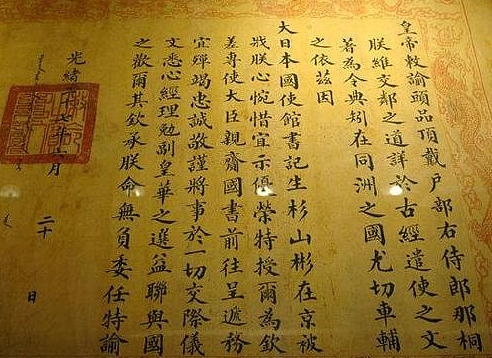 皇帝敕諭頭品頂戴戶部右侍郎那桐
朕維交鄰之道詳於古經遣使之文
著為令典矧在同洲之國尤切車輔
之依茲因
大日本國使館書記生杉山彬在京被
戕朕心惋惜宜示優榮特授爾為欽
差專使大臣親齎國書前往呈遞務
宜殫竭忠誠敬謹將事於一切交際儀
文悉心經理勉副皇華之選益聯與國
之歡爾其欽承朕命無負委任特諭
光緒二十七年六月
二十
日